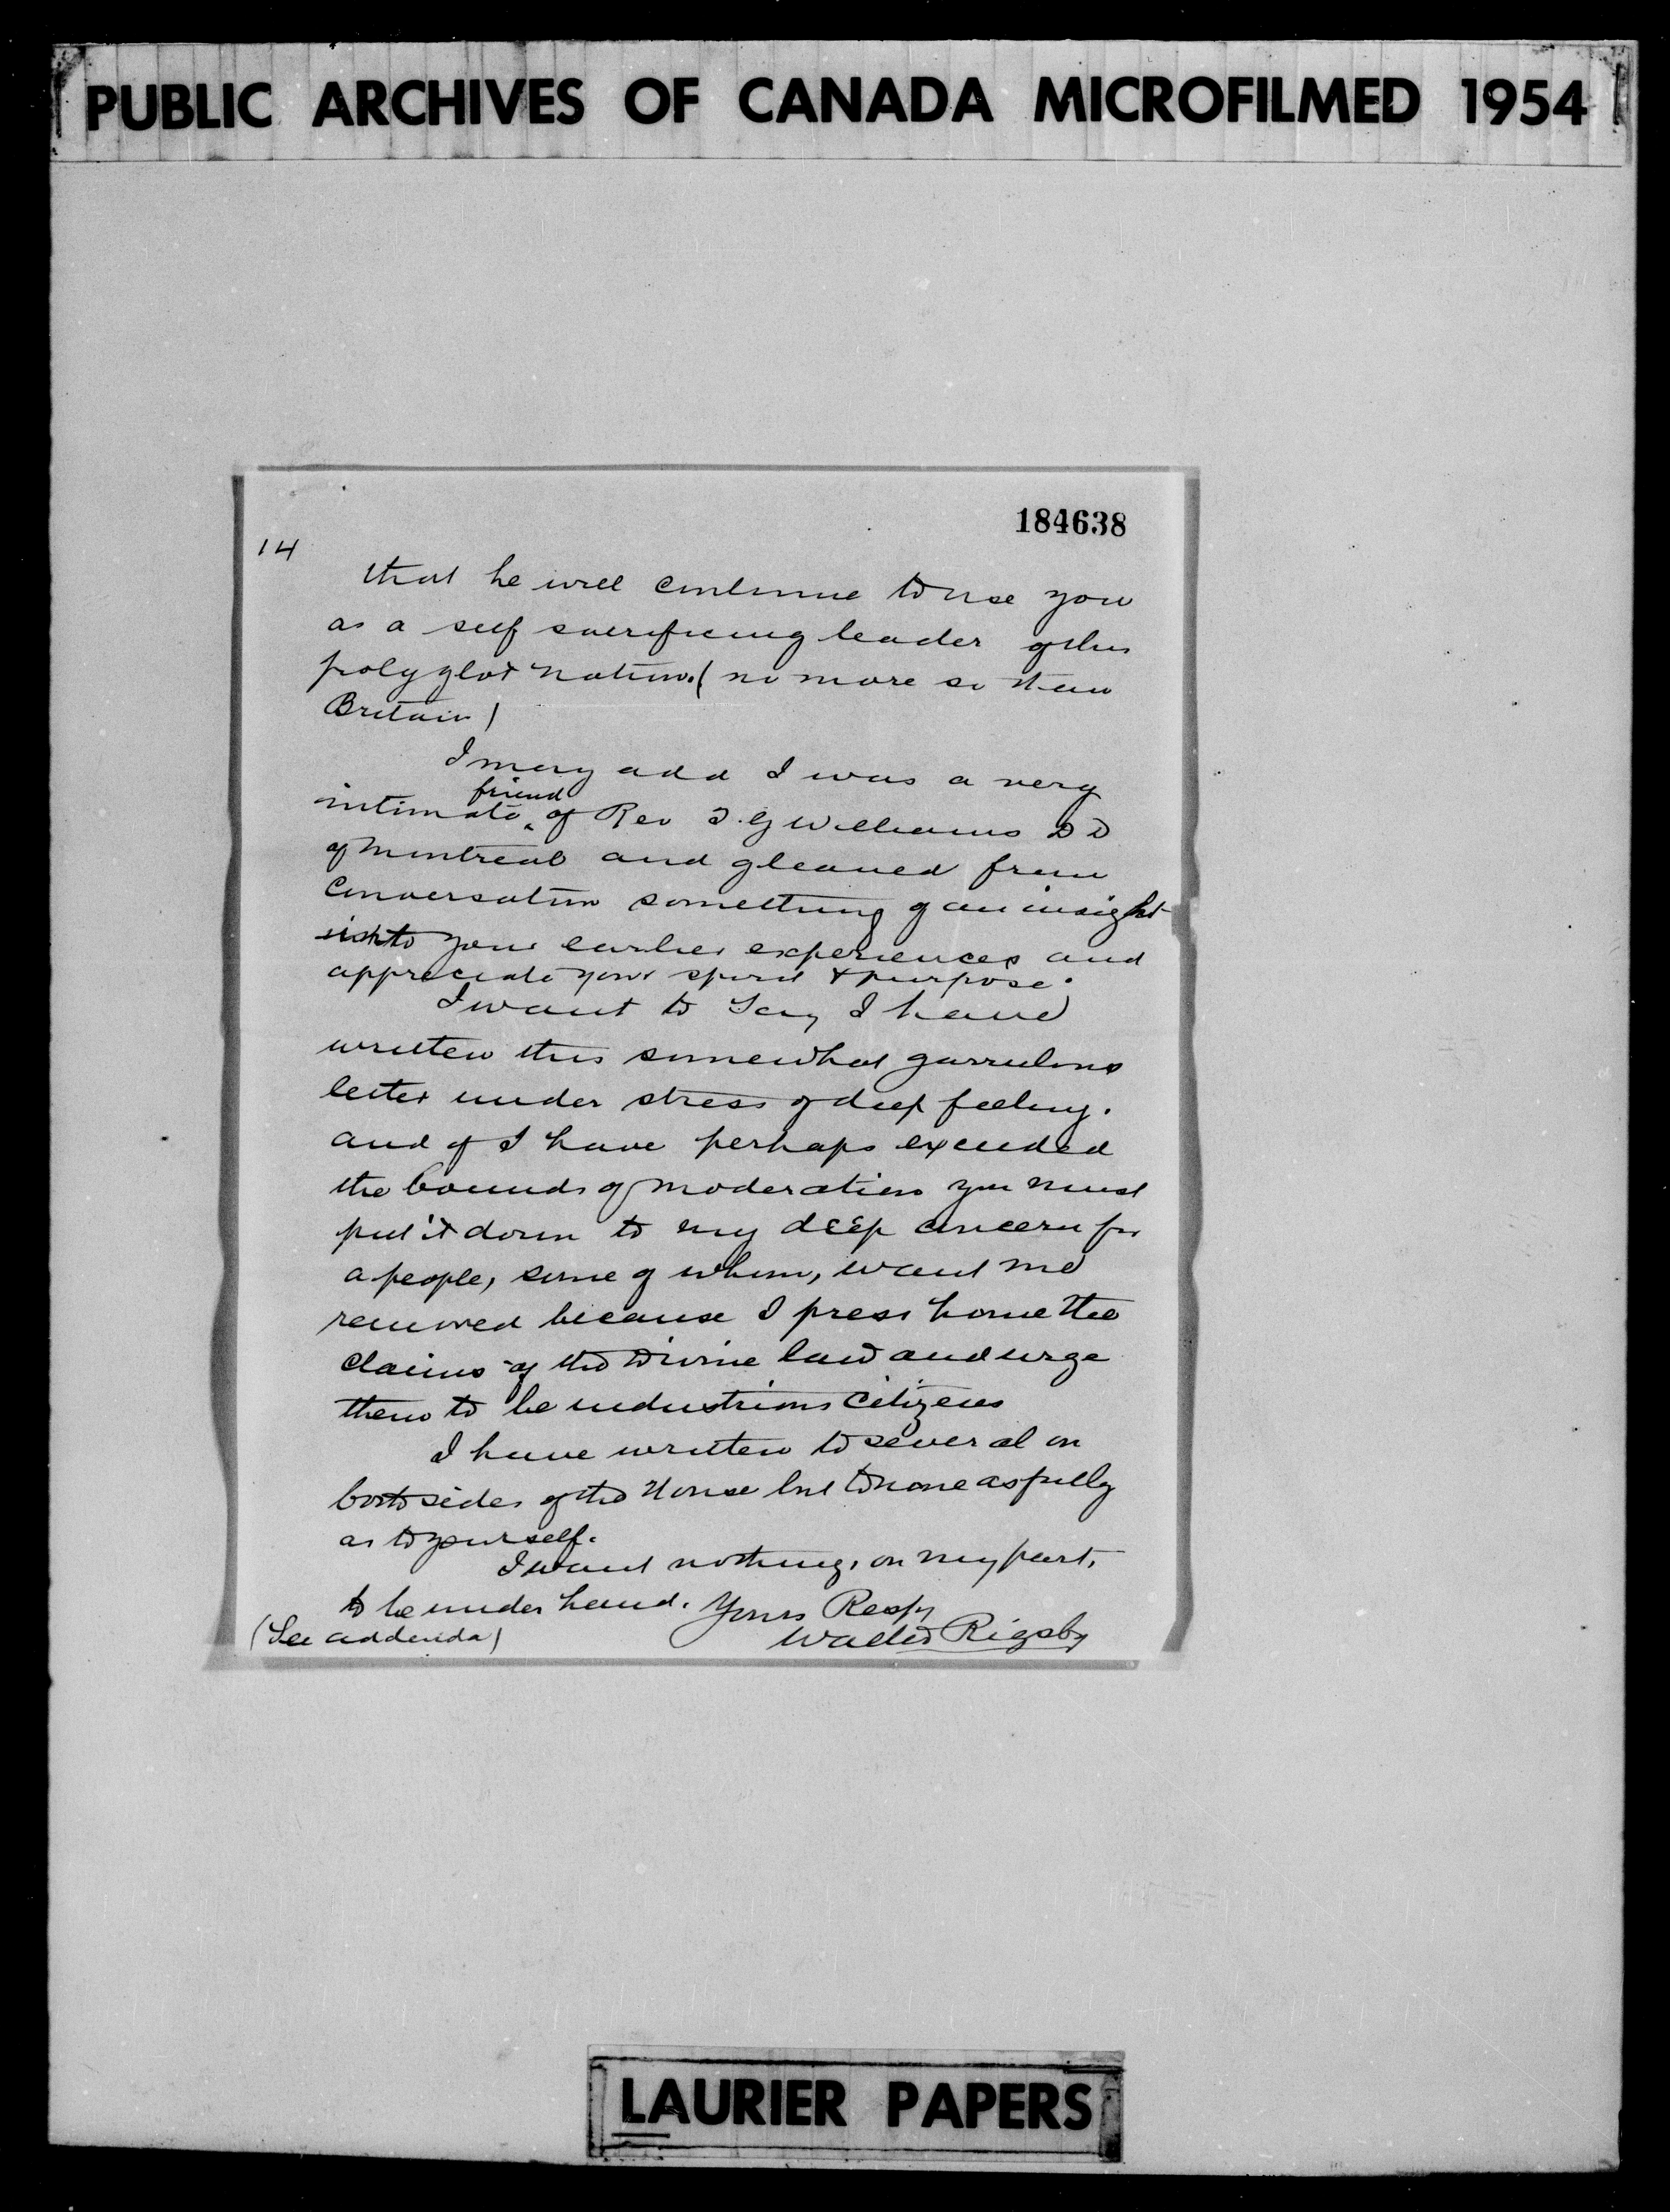 PUBLIC ARCHIVES OF CANADA MICROFILMED 1954
184638
14
that he will continue to use you
as a self sacrificing leader of this
polyglot nation. (no more so than
Britain)
I may add I was a very
friend
intimate ‸ of Rev T. G Williams D D
of Montreal and gleaned from
conversation something of an insight
into your earlier experiences and
appreciate your spirit & purpose.
I want to say I have
written this somewhat garrulous
letter under stress of deep feeling.
and if I have perhaps exceeded
the bounds of moderation you must
put it down to my deep concern for
a people, some of whom, want me
removed because I press home the
claims of the Divine law and urge
them to be industrious citizens
I have written to several on
both sides of the House but to none as fully
as to yourself.
I want nothing, on my part,
to be under hand. Yours Respy
(See addenda) Walter Rigsby
LAURIER PAPERS